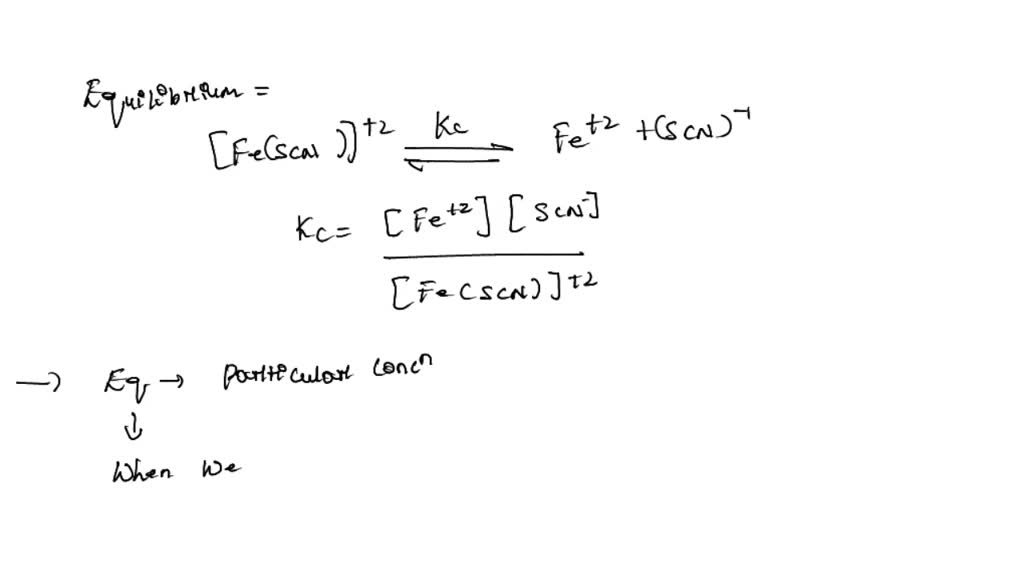 Equilibrium =
[Fe(SCN)]⁺² ⇌ Kc Fe⁺² + (SCN)⁻¹
Kc = [Fe⁺²] [SCN⁻]
[Fe(SCN)]⁺²
→ Eq → Particular concⁿ
↓
When we